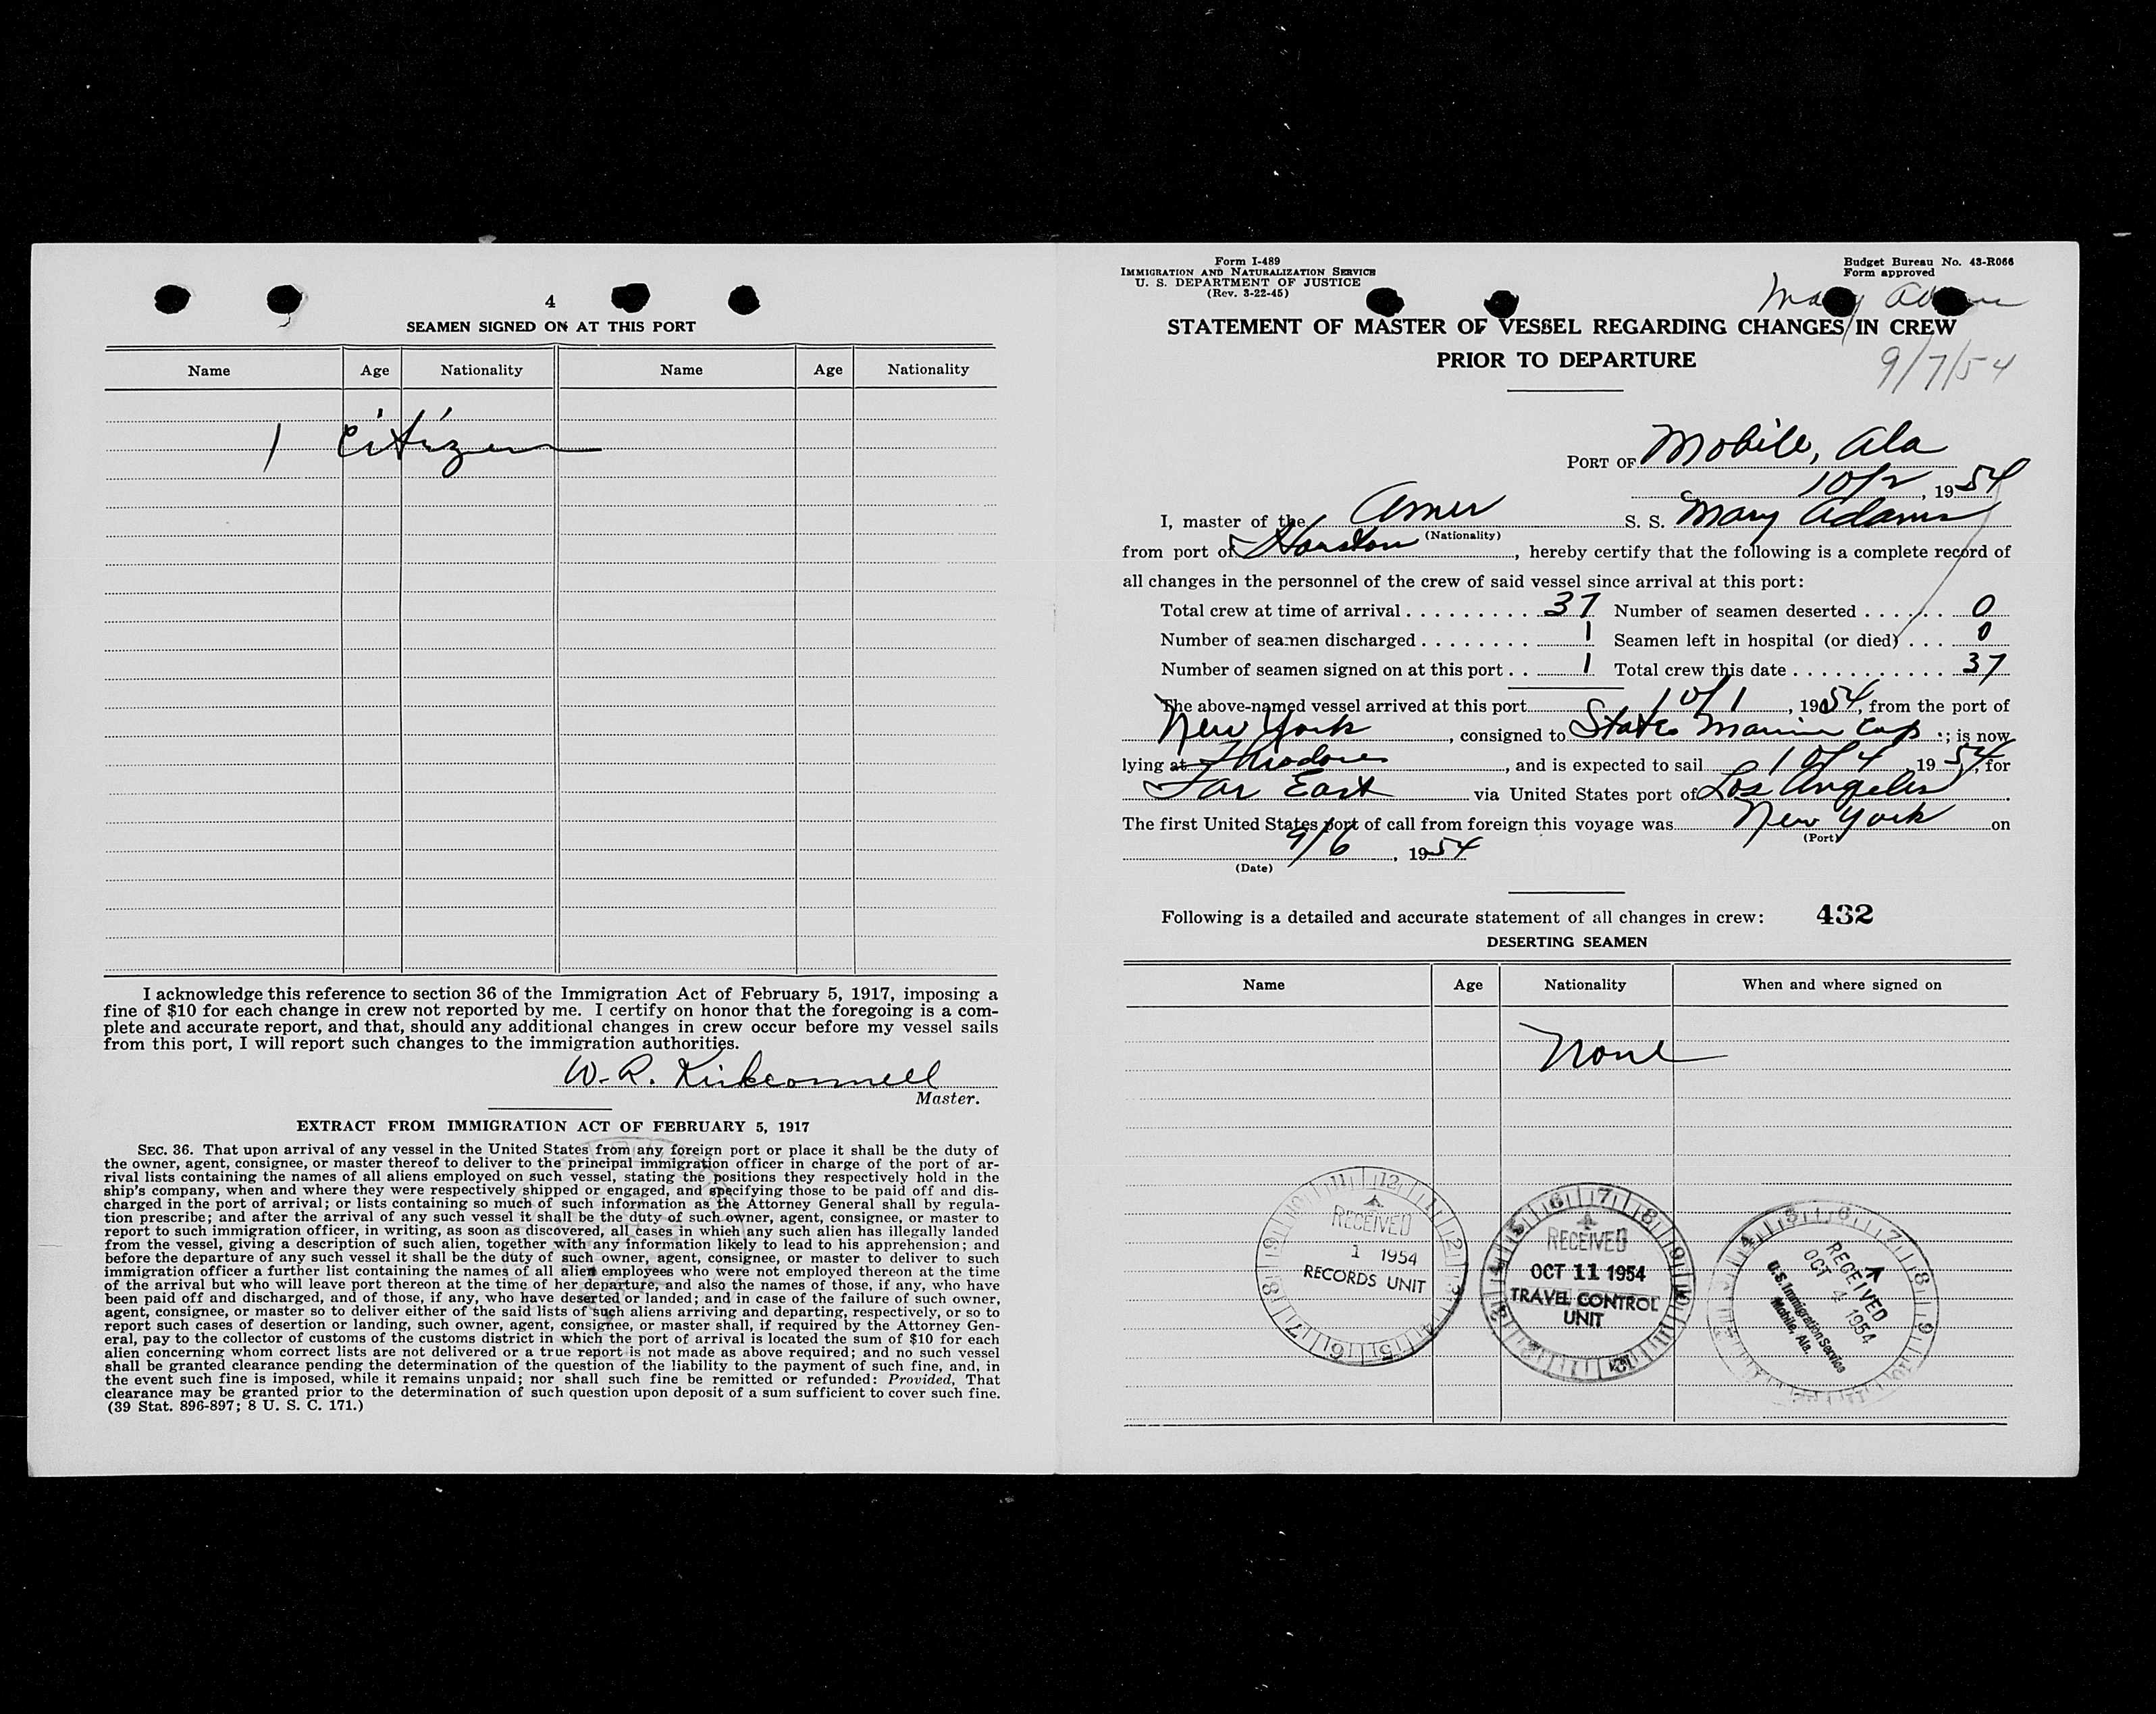 4
SEAMEN SIGNED ON AT THIS PORT
Name Age Nationality Name Age Nationality
1 Citizen
I acknowledge this reference to section 36 of the Immigration Act of February 5, 1917, imposing a
fine of $10 for each change in crew not reported by me. I certify on honor that the foregoing is a com-
plete and accurate report, and that, should any additional changes in crew occur before my vessel sails
from this port, I will report such changes to the immigration authorities.
W. R. Kirkconnell
Master.
EXTRACT FROM IMMIGRATION ACT OF FEBRUARY 5, 1917
SEC. 36. That upon arrival of any vessel in the United States from any foreign port or place it shall be the duty of
the owner, agent, consignee, or master thereof to deliver to the principal immigration officer in charge of the port of ar-
rival lists containing the names of all aliens employed on such vessel, stating the positions they respectively hold in the
ship's company, when and where they were respectively shipped or engaged, and specifying those to be paid off and dis-
charged in the port of arrival; or lists containing so much of such information as the Attorney General shall by regula-
tion prescribe; and after the arrival of any such vessel it shall be the duty of such owner, agent, consignee, or master to
report to such immigration officer, in writing, as soon as discovered, all cases in which any such alien has illegally landed
from the vessel, giving a description of such alien, together with any information likely to lead to his apprehension; and
before the departure of any such vessel it shall be the duty of such owner, agent, consignee, or master to deliver to such
immigration officer a further list containing the names of all alien employees who were not employed thereon at the time
of the arrival but who will leave port thereon at the time of her departure, and also the names of those, if any, who have
been paid off and discharged, and of those, if any, who have deserted or landed; and in case of the failure of such owner,
agent, consignee, or master so to deliver either of the said lists of such aliens arriving and departing, respectively, or so to
report such cases of desertion or landing, such owner, agent, consignee, or master shall, if required by the Attorney Gen-
eral, pay to the collector of customs of the customs district in which the port of arrival is located the sum of $10 for each
alien concerning whom correct lists are not delivered or a true report is not made as above required; and no such vessel
shall be granted clearance pending the determination of the question of the liability to the payment of such fine, and, in
the event such fine is imposed, while it remains unpaid; nor shall such fine be remitted or refunded: Provided, That
clearance may be granted prior to the determination of such question upon deposit of a sum sufficient to cover such fine.
(39 Stat. 896-897; 8 U. S. C. 171.)
Form I-489
IMMIGRATION AND NATURALIZATION SERVICE
U. S. DEPARTMENT OF JUSTICE
(Rev. 3-22-45)
Budget Bureau No. 43-R066
Form approved
Mary Adams
STATEMENT OF MASTER OF VESSEL REGARDING CHANGES IN CREW
PRIOR TO DEPARTURE
9/7/54
PORT OF Mobile, Ala
10/2, 1954
I, master of the Amer S. S. Mary Adams
(Nationality)
from port of Houston, hereby certify that the following is a complete record of
all changes in the personnel of the crew of said vessel since arrival at this port:
Total crew at time of arrival . . . . . . . . . . 37 Number of seamen deserted . . . . . . . 0
Number of seamen discharged . . . . . . . . 1 Seamen left in hospital (or died) . . . 0
Number of seamen signed on at this port . . 1 Total crew this date . . . . . . . . . . . 37
The above-named vessel arrived at this port 10/1, 1954, from the port of
New York, consigned to States Marine Corp.; is now
lying at Theodore, and is expected to sail 10/4, 1954, for
Far East via United States port of Los Angeles.
The first United States port of call from foreign this voyage was New York on
(Port)
9/6, 1954
(Date)
Following is a detailed and accurate statement of all changes in crew: 432
DESERTING SEAMEN
Name Age Nationality When and where signed on
None
RECEIVED
1 1954
RECORDS UNIT
RECEIVED
OCT 11 1954
TRAVEL CONTROL
UNIT
RECEIVED
OCT 4 1954
U.S. Immigration Service
Mobile, Ala.